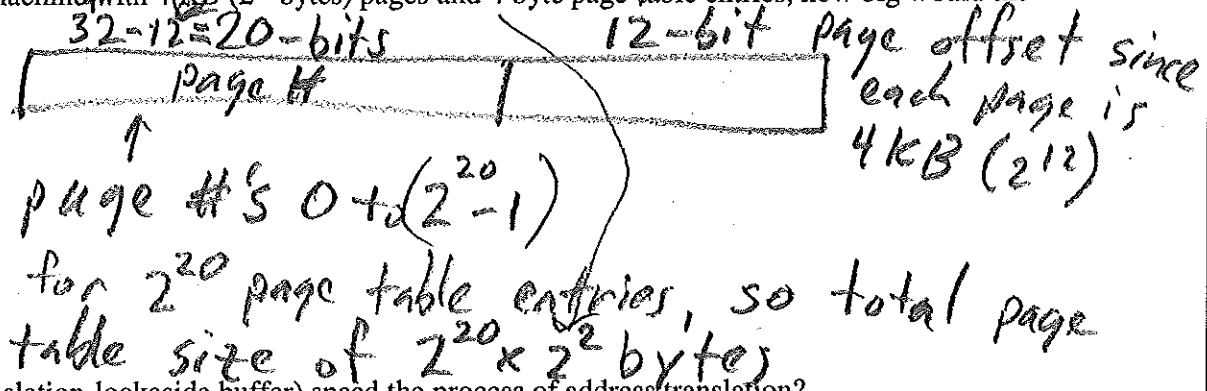 with 4 kB (2 bytes) pages and 4 byte page table entries, how big would
32-12=20-bits 12-bit page offset since
Page # each page is
4KB (2^12)
page #'s 0 to (2^20-1)
for 2^20 page table entries, so total page
table size of 2^20 x 2^2 bytes
lookaside buffer) speed the process of address translation?